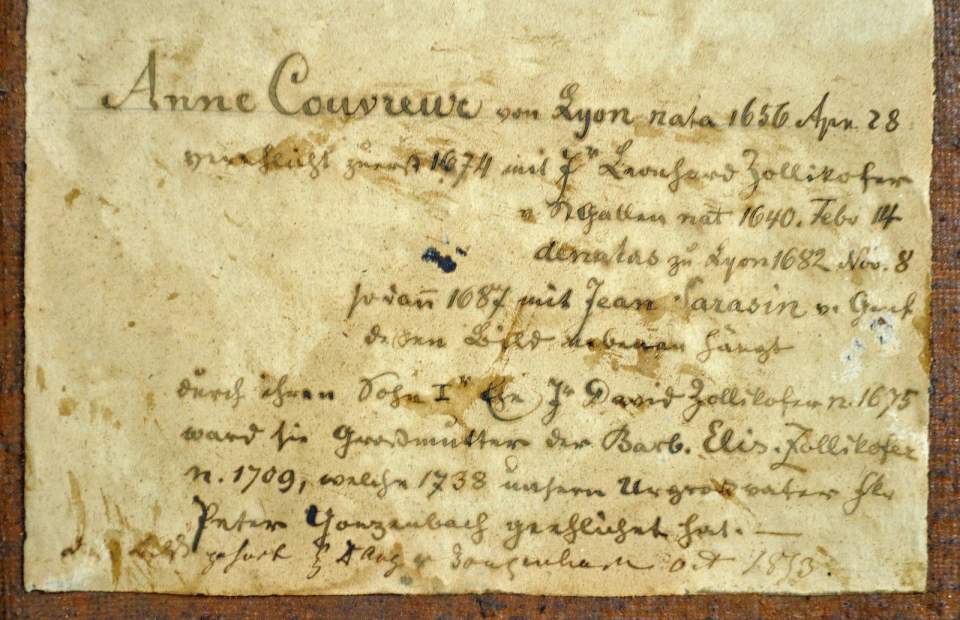 Anne Couvreur von Lyon nata 1656 Apr. 28
verehlicht zuerst 1674 mit Jr Leonhard Zollikofer
v. St Gallen nat 1640. Febr 14
denatus zu Lyon 1682 Nov. 8
sodann 1687 mit Jean Sarasin v. Genf
dessen Bild nebenan hängt
durch ihren Sohn Ir Ehe Jr David Zollikofer n. 1675
ward sie Großmutter der Barb. Elis. Zollikofer
n. 1709, welche 1738 unsern Urgrosvater Hr
Peter Gonzenbach geehlichet hat. —
gehört Gonzenbach Oct